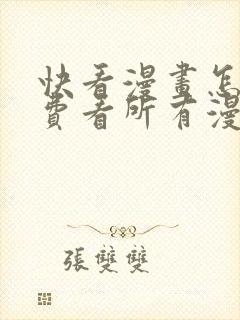 快看漫畫怎
費看所有漫
張雙雙